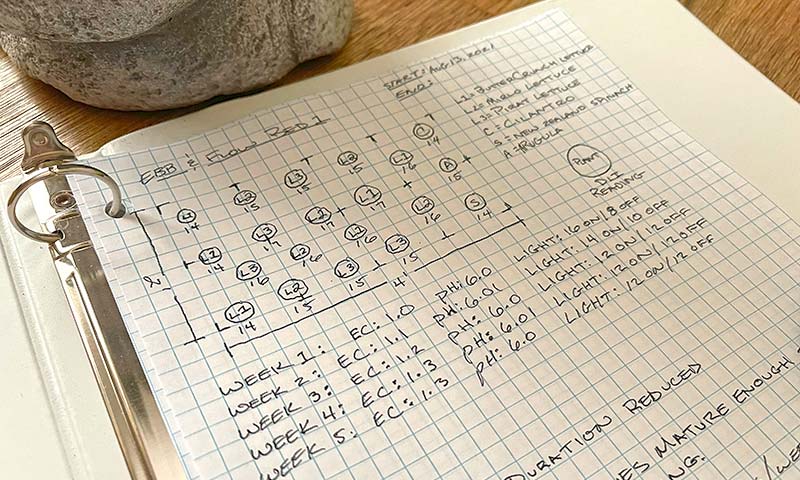 START: AUG 13, 2021
END:
L1= BUTTERCRUNCH LETTUCE
L2= MUIR LETTUCE
L3= PIRAT LETTUCE
C= CILANTRO
S= NEW ZEALAND SPINACH
A= ARUGULA
PLANT
DLI
READING
EBB & FLOW BED 1
L1 L2 L3 L2 L1 C
14 15 15 15 16 14
L3 L2 L1 A
17 17 17 15
L3 L2 L2 L2 S
16 16 16 16 14
L1 L2 L3 L3
14 15 15 15
2'
4'
WEEK 1: EC: 1.0 PH: 6.0 LIGHT: 16 ON/8 OFF
WEEK 2: EC: 1.1 PH: 6.01 LIGHT: 14 ON/10 OFF
WEEK 3: EC: 1.2 PH: 6.0 LIGHT: 12 ON/12 OFF
WEEK 4: EC: 1.3 PH: 6.01 LIGHT: 12 ON/12 OFF
WEEK 5: EC: 1.3 PH: 6.0 LIGHT: 12 ON/12 OFF
DURATION REDUCED
MATURE ENOUGH